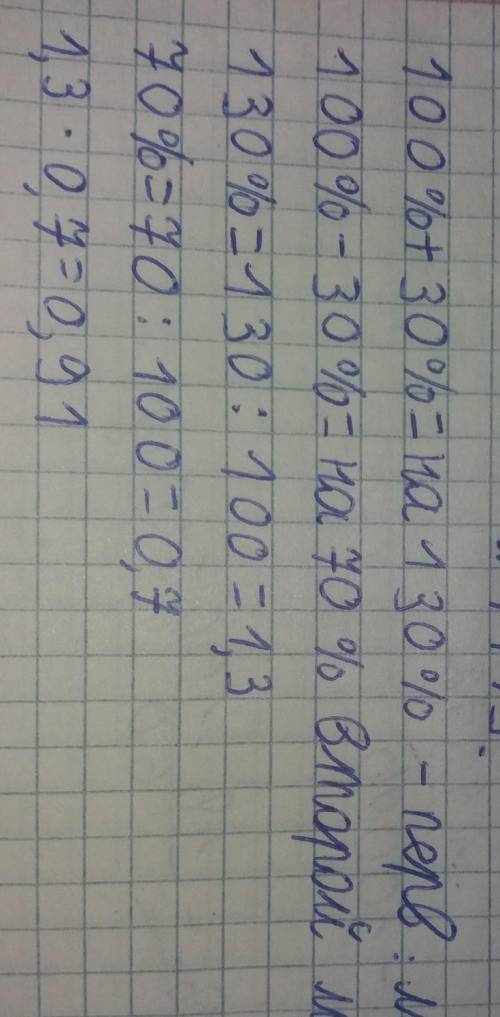 100%+30%=на 130% - перв: м
100%-30%=на 70% второй м
130%=130:100=1,3
70%=70:100=0,7
1,3·0,7=0,91